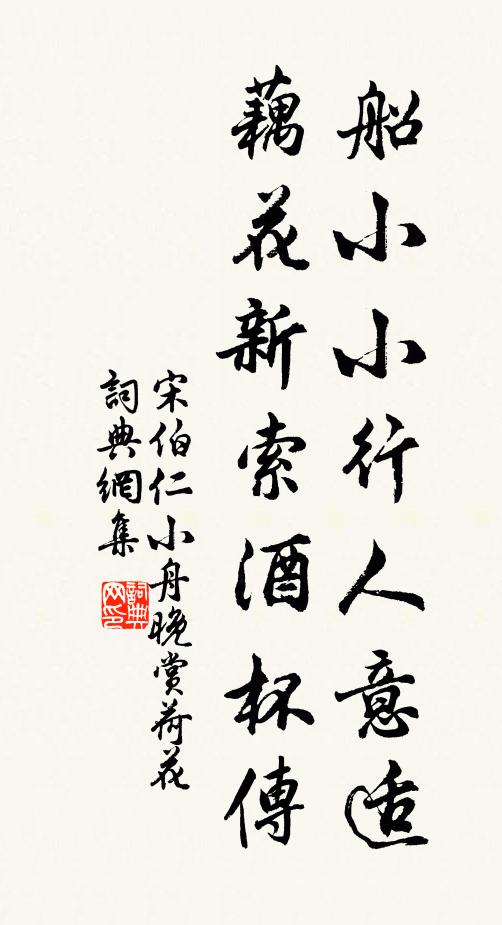 船小小行人意适
藕花新索酒杯傳
宋伯仁小舟晚賞荷花
詞典網集
詞典网印